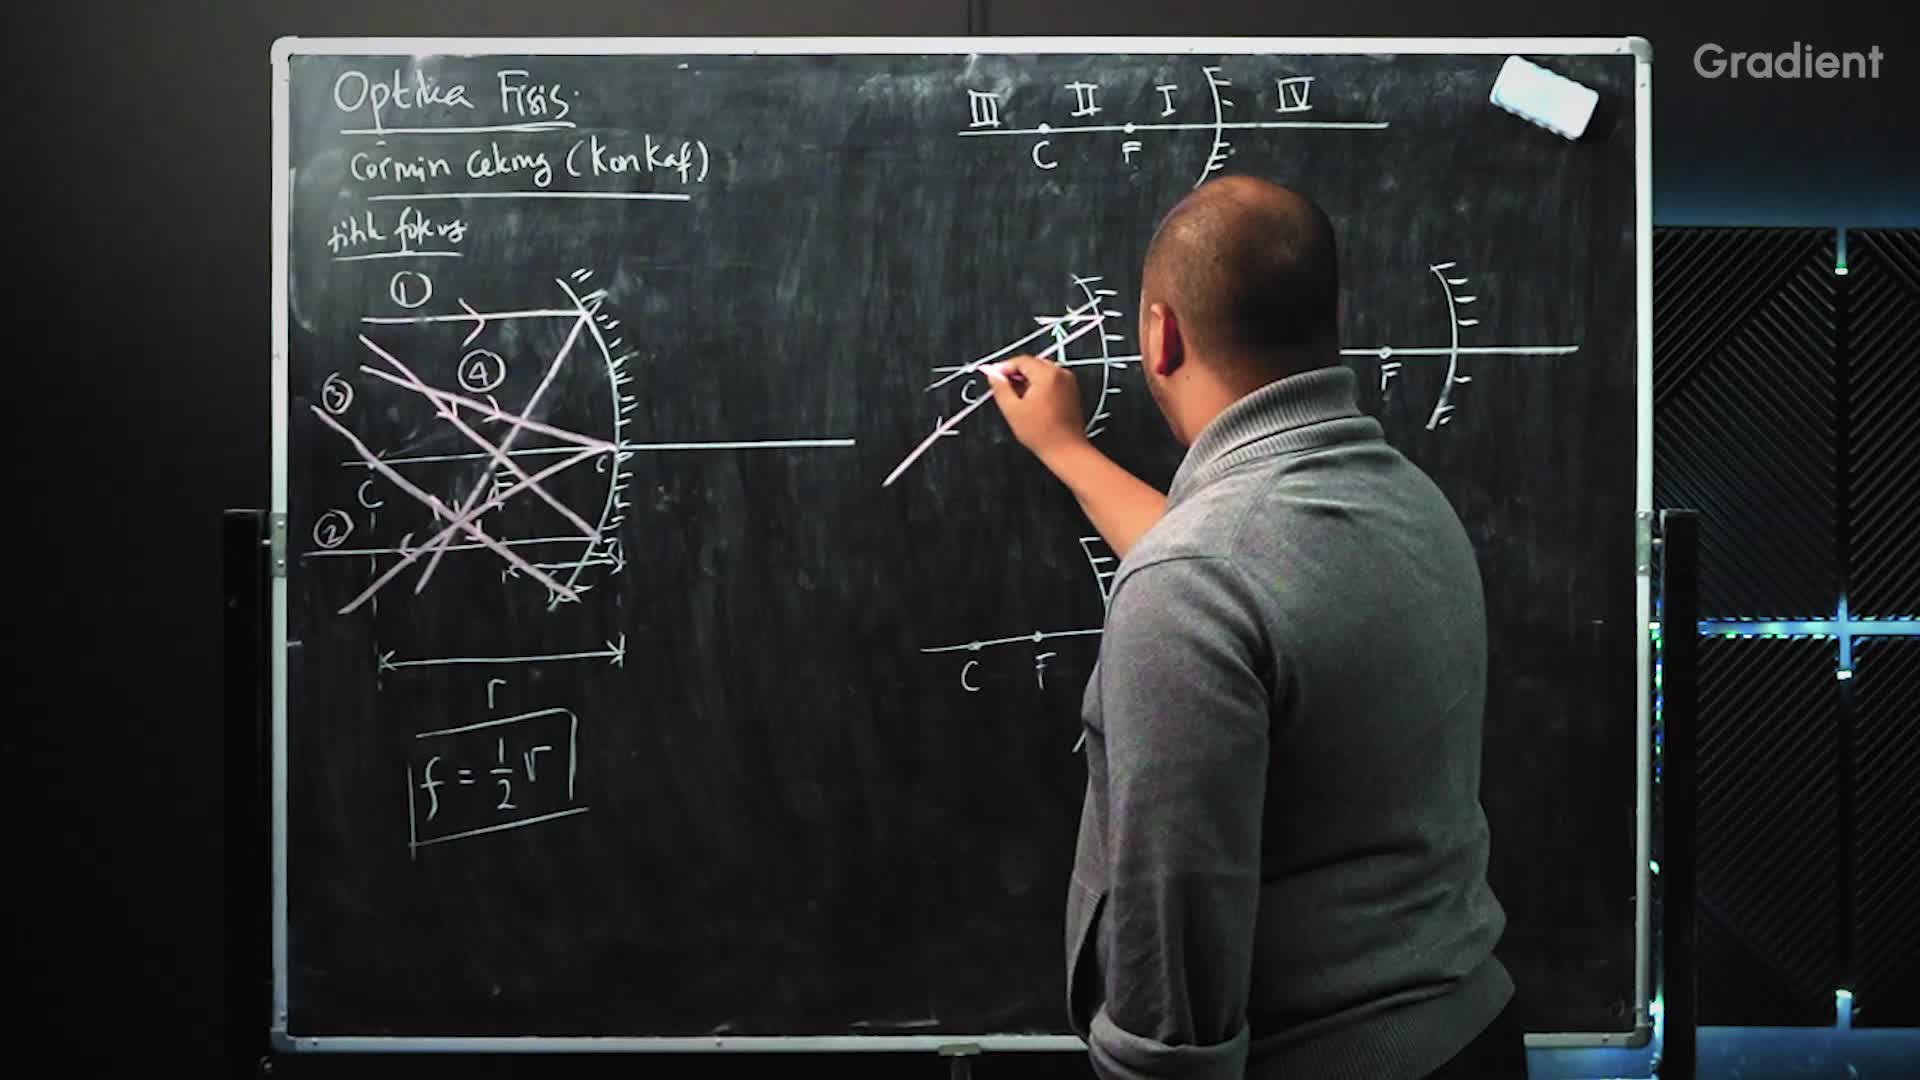 Gradient
Optika Fisis.
Cermin Cekung (Konkaf)
titik fokus
III II I IV
C F
①
④
③
C
②
C
r
f = 1/2 r
C
F
C F